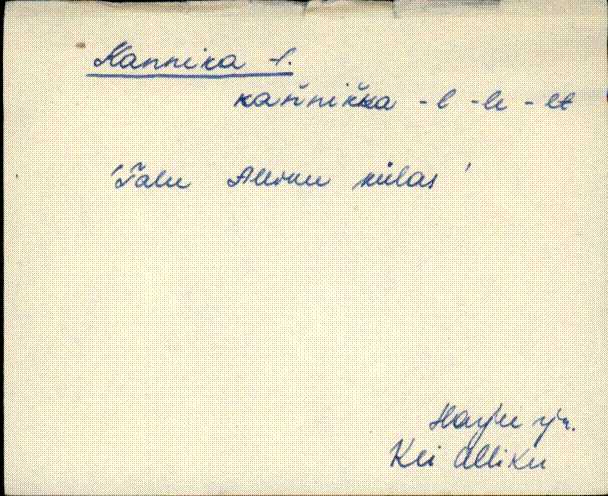 Kannika t.
kan̆nik̆ka -l -le -lt
'Talu Alliku külas'
Harju rj.
Kei Alliku